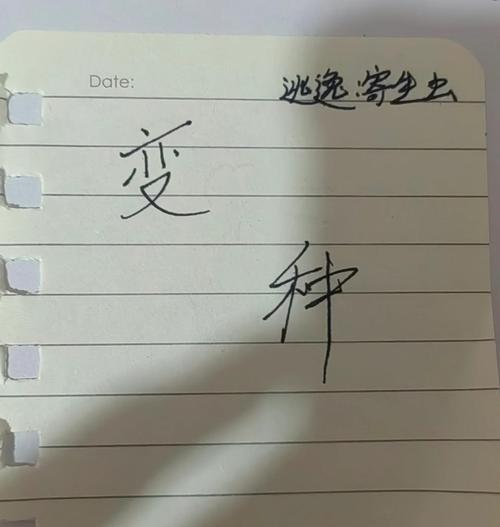 Date:
逃逸.寄生虫
变
种